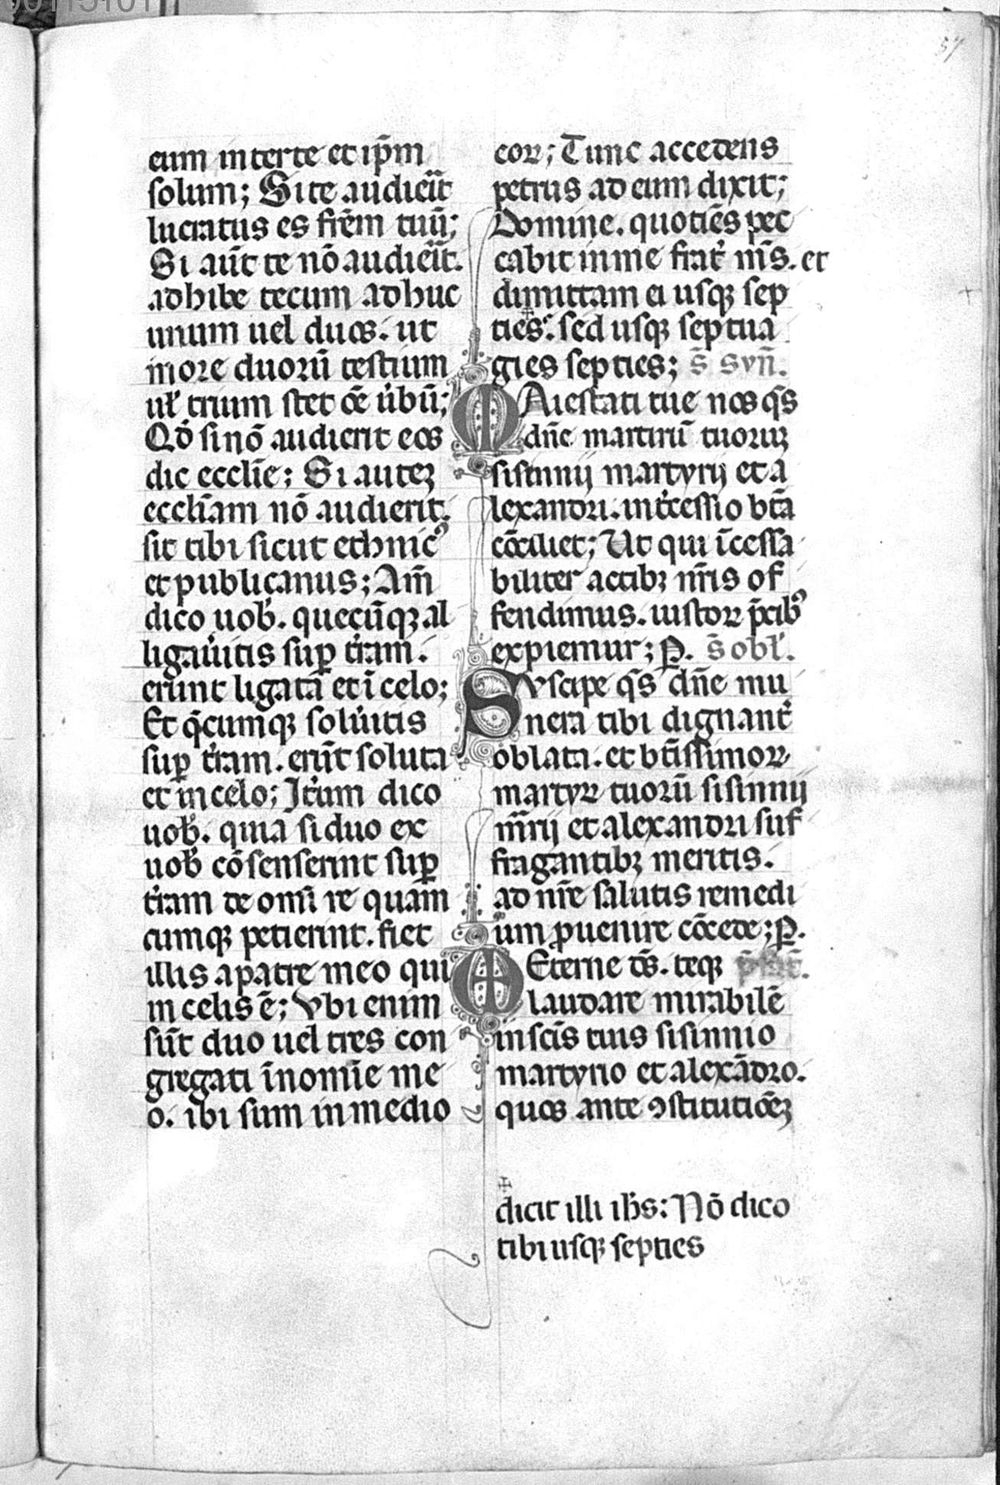 57
eum inter te et ip̄m
solum; Si te audierit
lucratus es fr̄em tuū;
Si aūt te nō audierit.
adhibe tecum adhuc
unum uel duos. ut
in ore duorū testium
uł trium stet om̄e u̇bū;
Qď si nō audierit eos
dic eccl̄ie; Si autez
eccl̄iam nō audierit.
sit tibi sicut ethnicꝰ
et publicanus; Am̄
dico uob̾. quecūqꝫ al
ligau̾itis suꝑ t̾ram.
erunt ligata et ī celo;
Et q̄cumqꝫ solu̾itis
suꝑ t̾ram. erūt soluta
et in celo; It̾um dico
uob̾. quia si duo ex
uob̾ cōsenserint suꝑ
t̾ram de omī re quam
cumqꝫ petierint. fiet
illis a patre meo qui
in celis ē; Vbi enim
sūt duo uel tres con
gregati ī nomīe me
o. ibi sum in medio
eoꝝ; Tunc accedens
petrus ad eum dixit;
Domine. quotiēs pec
cabit in me frat̾ m̄s. et
dimittam ei usqꝫ sep
ties. sed usqꝫ septua
gies septies; s̄ syn̄.
Maiestati tue nos q̄s
dn̄e martirū tuoruꝫ
sisinnij martyrij et a
lexandri. int̾cessio bt̄a
cōciliet; Ut qui īcessa
biliter actibꝫ nr̄is of
fendimus. iustoꝝ p̄cibꝰ
expiemur; P. s̄ obł.
Suscipe q̄s dn̄e mu
nera tibi dignant̾
oblata. et bt̄issimoꝝ
martyꝝ tuorū sisinnij
mr̄rij et alexandri suf
fragantibꝫ meritis.
ad nr̄e salutis remedi
um ꝑuenire cōcede; P.
Eterne ds̄. teqꝫ
laudare mirabilē
in scīs tuis sisinnio
martyrio et alexādro.
quos ante ꝯstitutiōeꝫ
dicit illi ih̄s: Nō dico
tibi usqꝫ septies